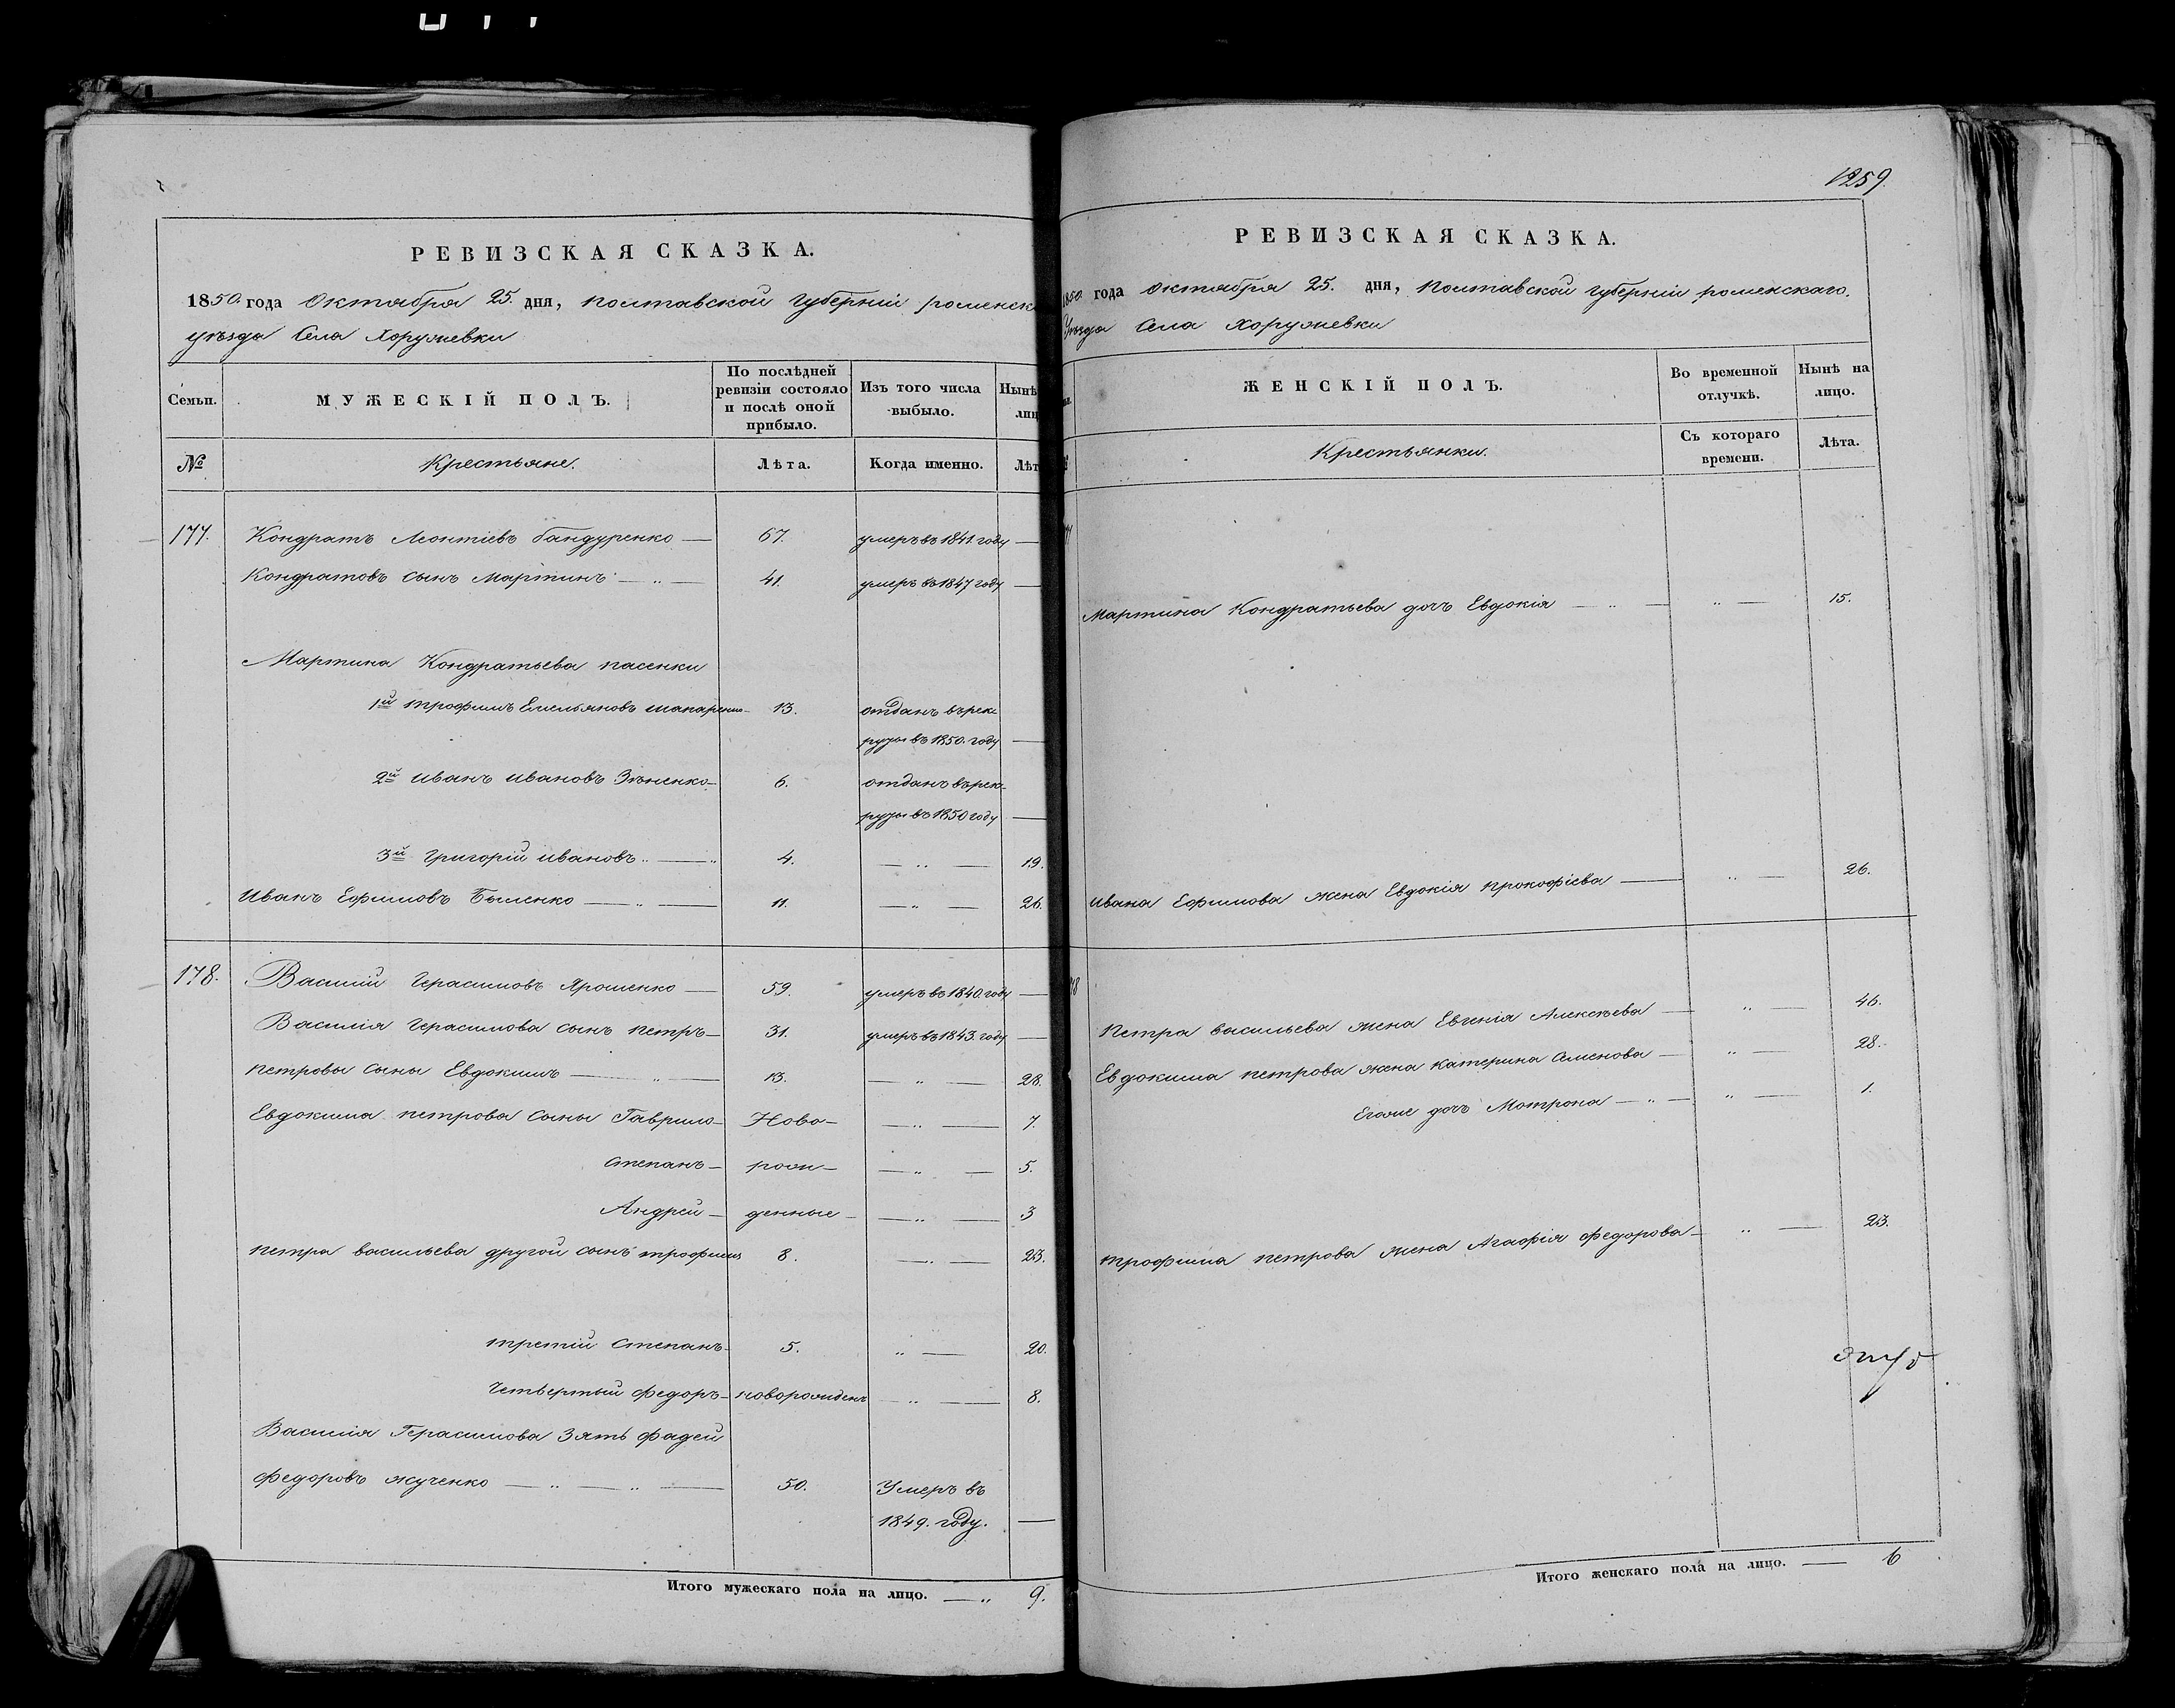 РЕВИЗСКАЯ СКАЗКА.
1850. года Октября 25. дня, полтавской губерніи роменск
уѣзда Села Хоружевки
Семьи.
МУЖЕСКІЙ ПОЛЪ.
По послѣдней ревизіи состояло и послѣ оной прибыло.
Изъ того числа выбыло.
Нынѣ
лиц
№
Крестьяне.
Лѣта.
Когда именно.
Лѣт
177. Кондратъ Леонтіевъ бандуренко — 67. умеръ въ 1841. году —
Кондратовъ сынъ Мартинъ — „ — 41. умеръ въ 1847 году —
Мартина Кондратьева пасенки
1й трофимъ Емельяновъ 13. отданъ въ рек-
руты въ 1850. году —
2й иванъ ивановъ Зѣненко — 6. отданъ въ рек-
руты въ 1850 году —
3й григорій ивановъ „ — „ 4. — „ — 19.
иванъ Ефимовъ Быленко — „ — 11. — „ — 26.
178. Василій Герасимовъ Ярошенко — 59. умеръ въ 1840. году —
Василія Герасимова сынъ петръ — 31. умеръ въ 1843. году —
петровы сыны Евдокимъ — „ — 13. — „ — 28.
Евдокима петрова сыны Гаврило — Ново- — „ — 7.
степанъ — рож- — „ — 5.
Андрей — денные — — „ — 3
петра васильева другой сынъ трофимъ 8. — „ — 23.
третій степанъ — 5. „ — 20.
четвертый федоръ — новорожденъ — „ — 8.
Василія Герасимова Зять фадей
федоровъ жученко — „ — „ — 50. Умеръ въ
1849. году. —
Итого мужескаго пола на лицо. — „ 9.
1259.
РЕВИЗСКАЯ СКАЗКА.
1850 года октября 25. дня, полтавской губерніи роменскаго.
Уѣзда Села хоружевки
ЖЕНСКІЙ ПОЛЪ.
Во временной отлучкѣ.
Нынѣ на лицо.
Крестьянки.
Съ котораго времени.
Лѣта.
Мартина Кондратьева дочь Евдокія — „ — „ — 15.
ивана Ефимова жена Евдокія прокофіева — „ — 26.
петра васильева жена Евгенія Алексѣева — „ — 46.
Евдокима петрова жена катерина Семенова — „ — 28.
Егоже дочь Мотрона — „ — „ — 1.
трофима петрова жена Агафія федорова — „ — 23.
Итого женскаго пола на лицо. — 6